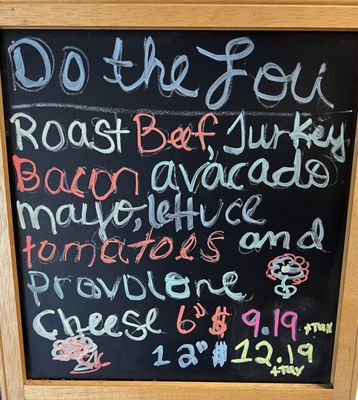 Do the Lou
Roast Beef, Turkey,
Bacon avacado
mayo, lettuce
tomatoes and
Provolone
Cheese 6" $ 9.19 +TAX
12" $ 12.19
+TAX